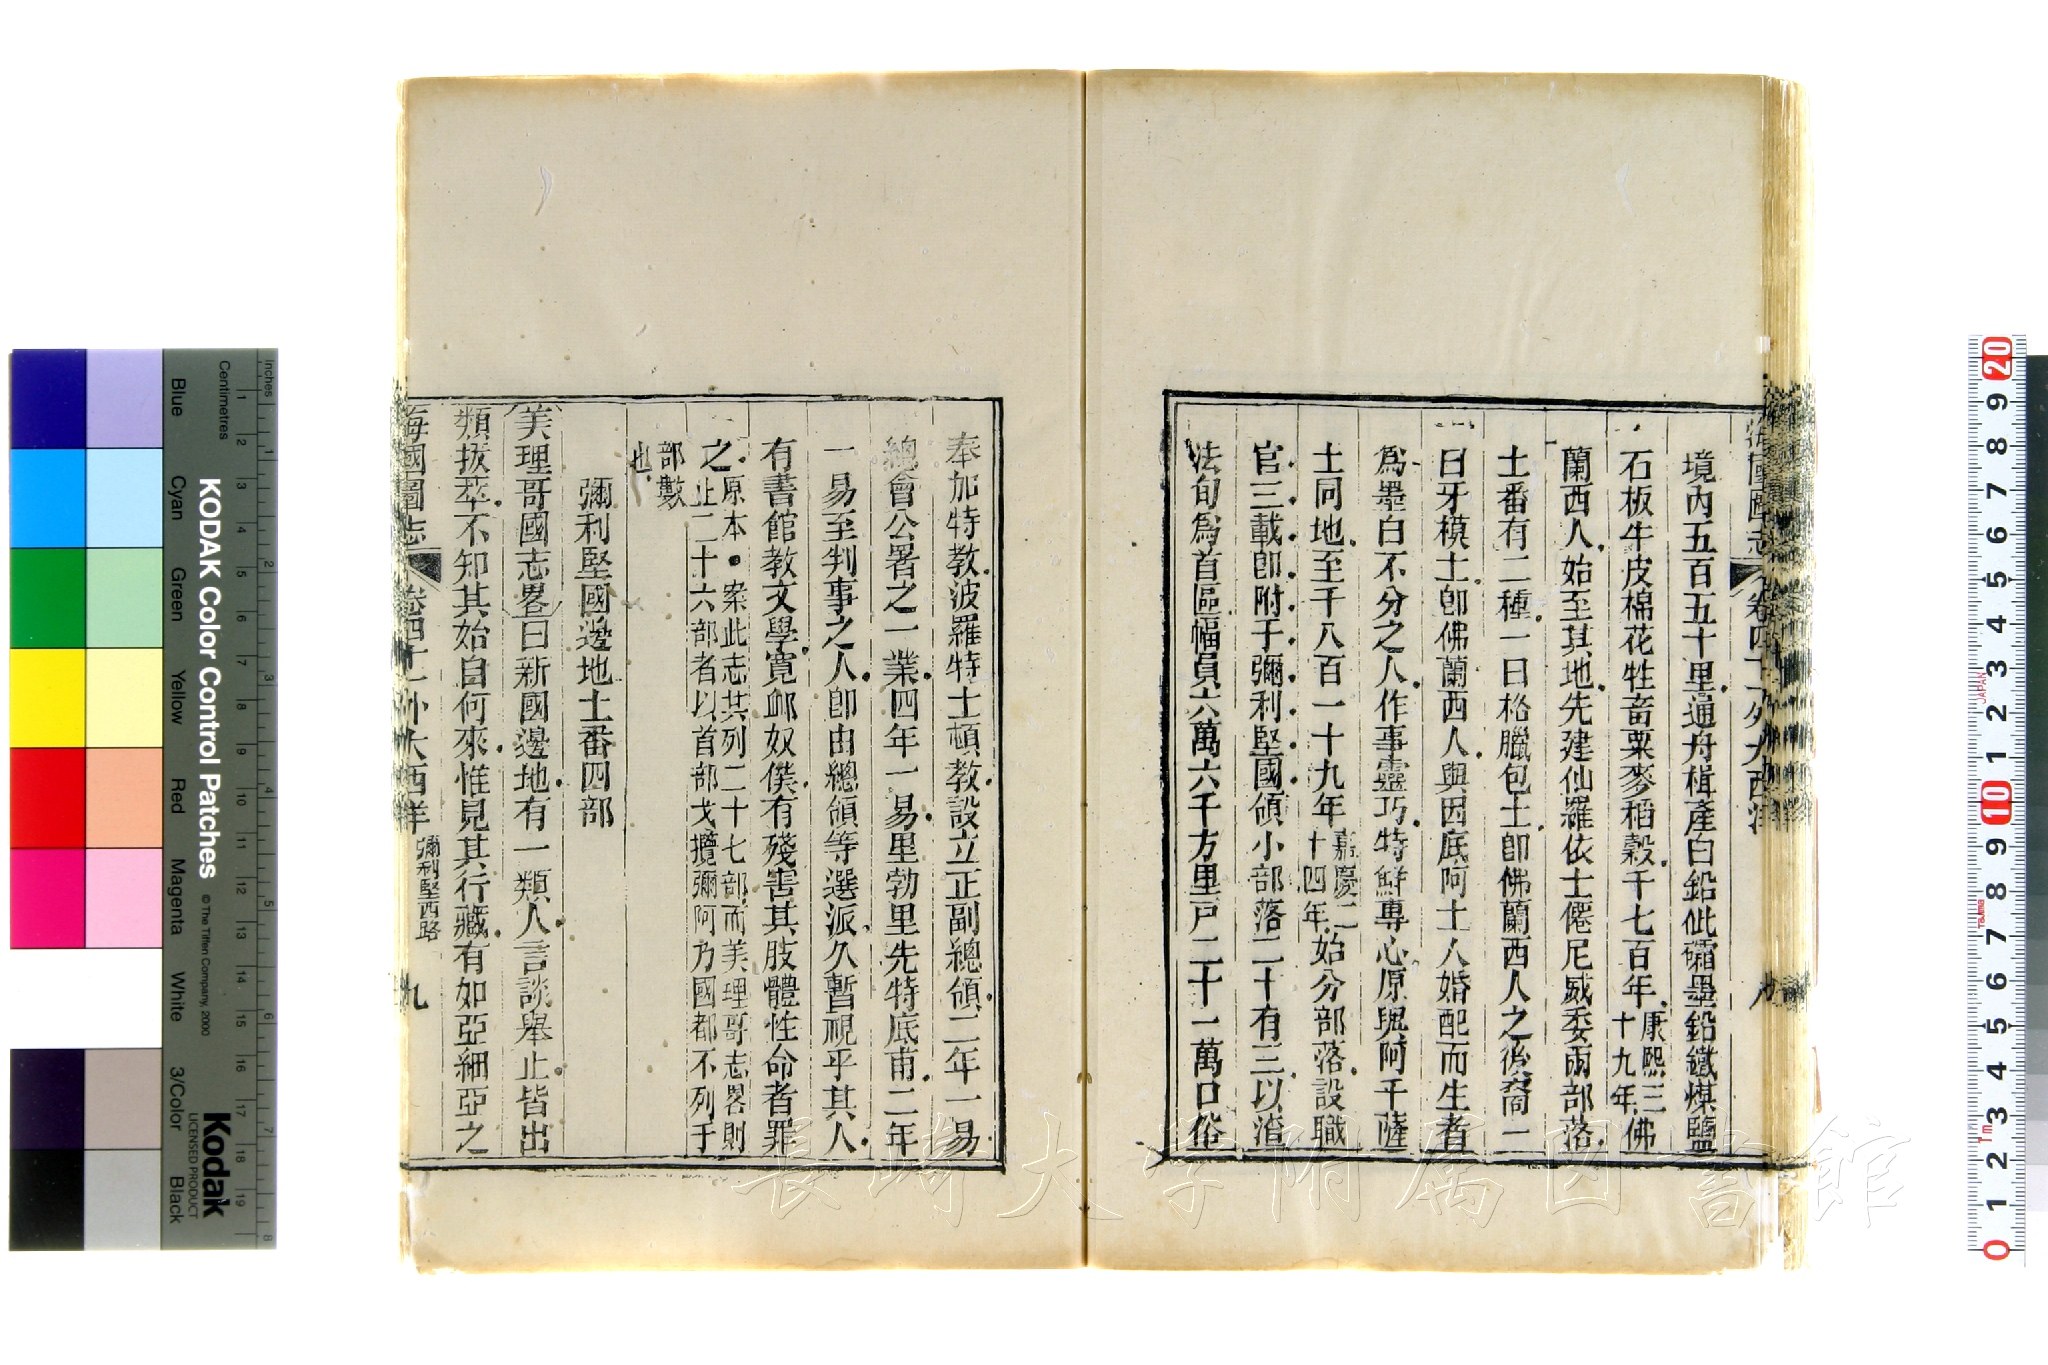 海國圖志
卷四十
外大西洋
八
境內五百五十里通舟楫產白鉛仳礵墨鉛鐵煤鹽
石板牛皮棉花牲畜粟麥稻穀千七百年康熙三十九年佛
蘭西人始至其地先建仙羅依士僊尼威委兩部落
土番有二種一曰格臘包土卽佛蘭西人之後裔一
曰牙模土卽佛蘭西人與因底阿土人婚配而生者
爲墨白不分之人作事靈巧特鮮專心原與阿干薩
土同地至千八百一十九年嘉慶二十四年始分部落設職
官三載卽附于彌利堅國領小部落二十有三以渣
法旬爲首區幅員六萬六千方里戶二十一萬口俗
奉加特敎波羅特士頓敎設立正副總領二年一易
總會公署之一業四年一易里勃里先特底甫二年
一易至判事之人卽由總領等選派久暫視乎其人
有書館敎文學寬邮奴僕有殘害其肢體性命者罪
之原本案此志共列二十七部而美理哥志畧則
止二十六部者以首部戈攬彌阿乃國都不列于
部數
也
彌利堅國邊地土番四部
美理哥國志畧曰新國邊地有一類人言談舉止皆出
類拔萃不知其始自何來惟見其行藏有如亞細亞之
海國圖志
卷四十
外大西洋
彌利堅西路
九
長崎大学附属図書館
KODAK Color Control Patches
© The Tiffen Company, 2000
Kodak
LICENSED PRODUCT
Inches
Centimetres
Blue
Cyan
Green
Yellow
Red
Magenta
White
3/Color
Black
JAPAN